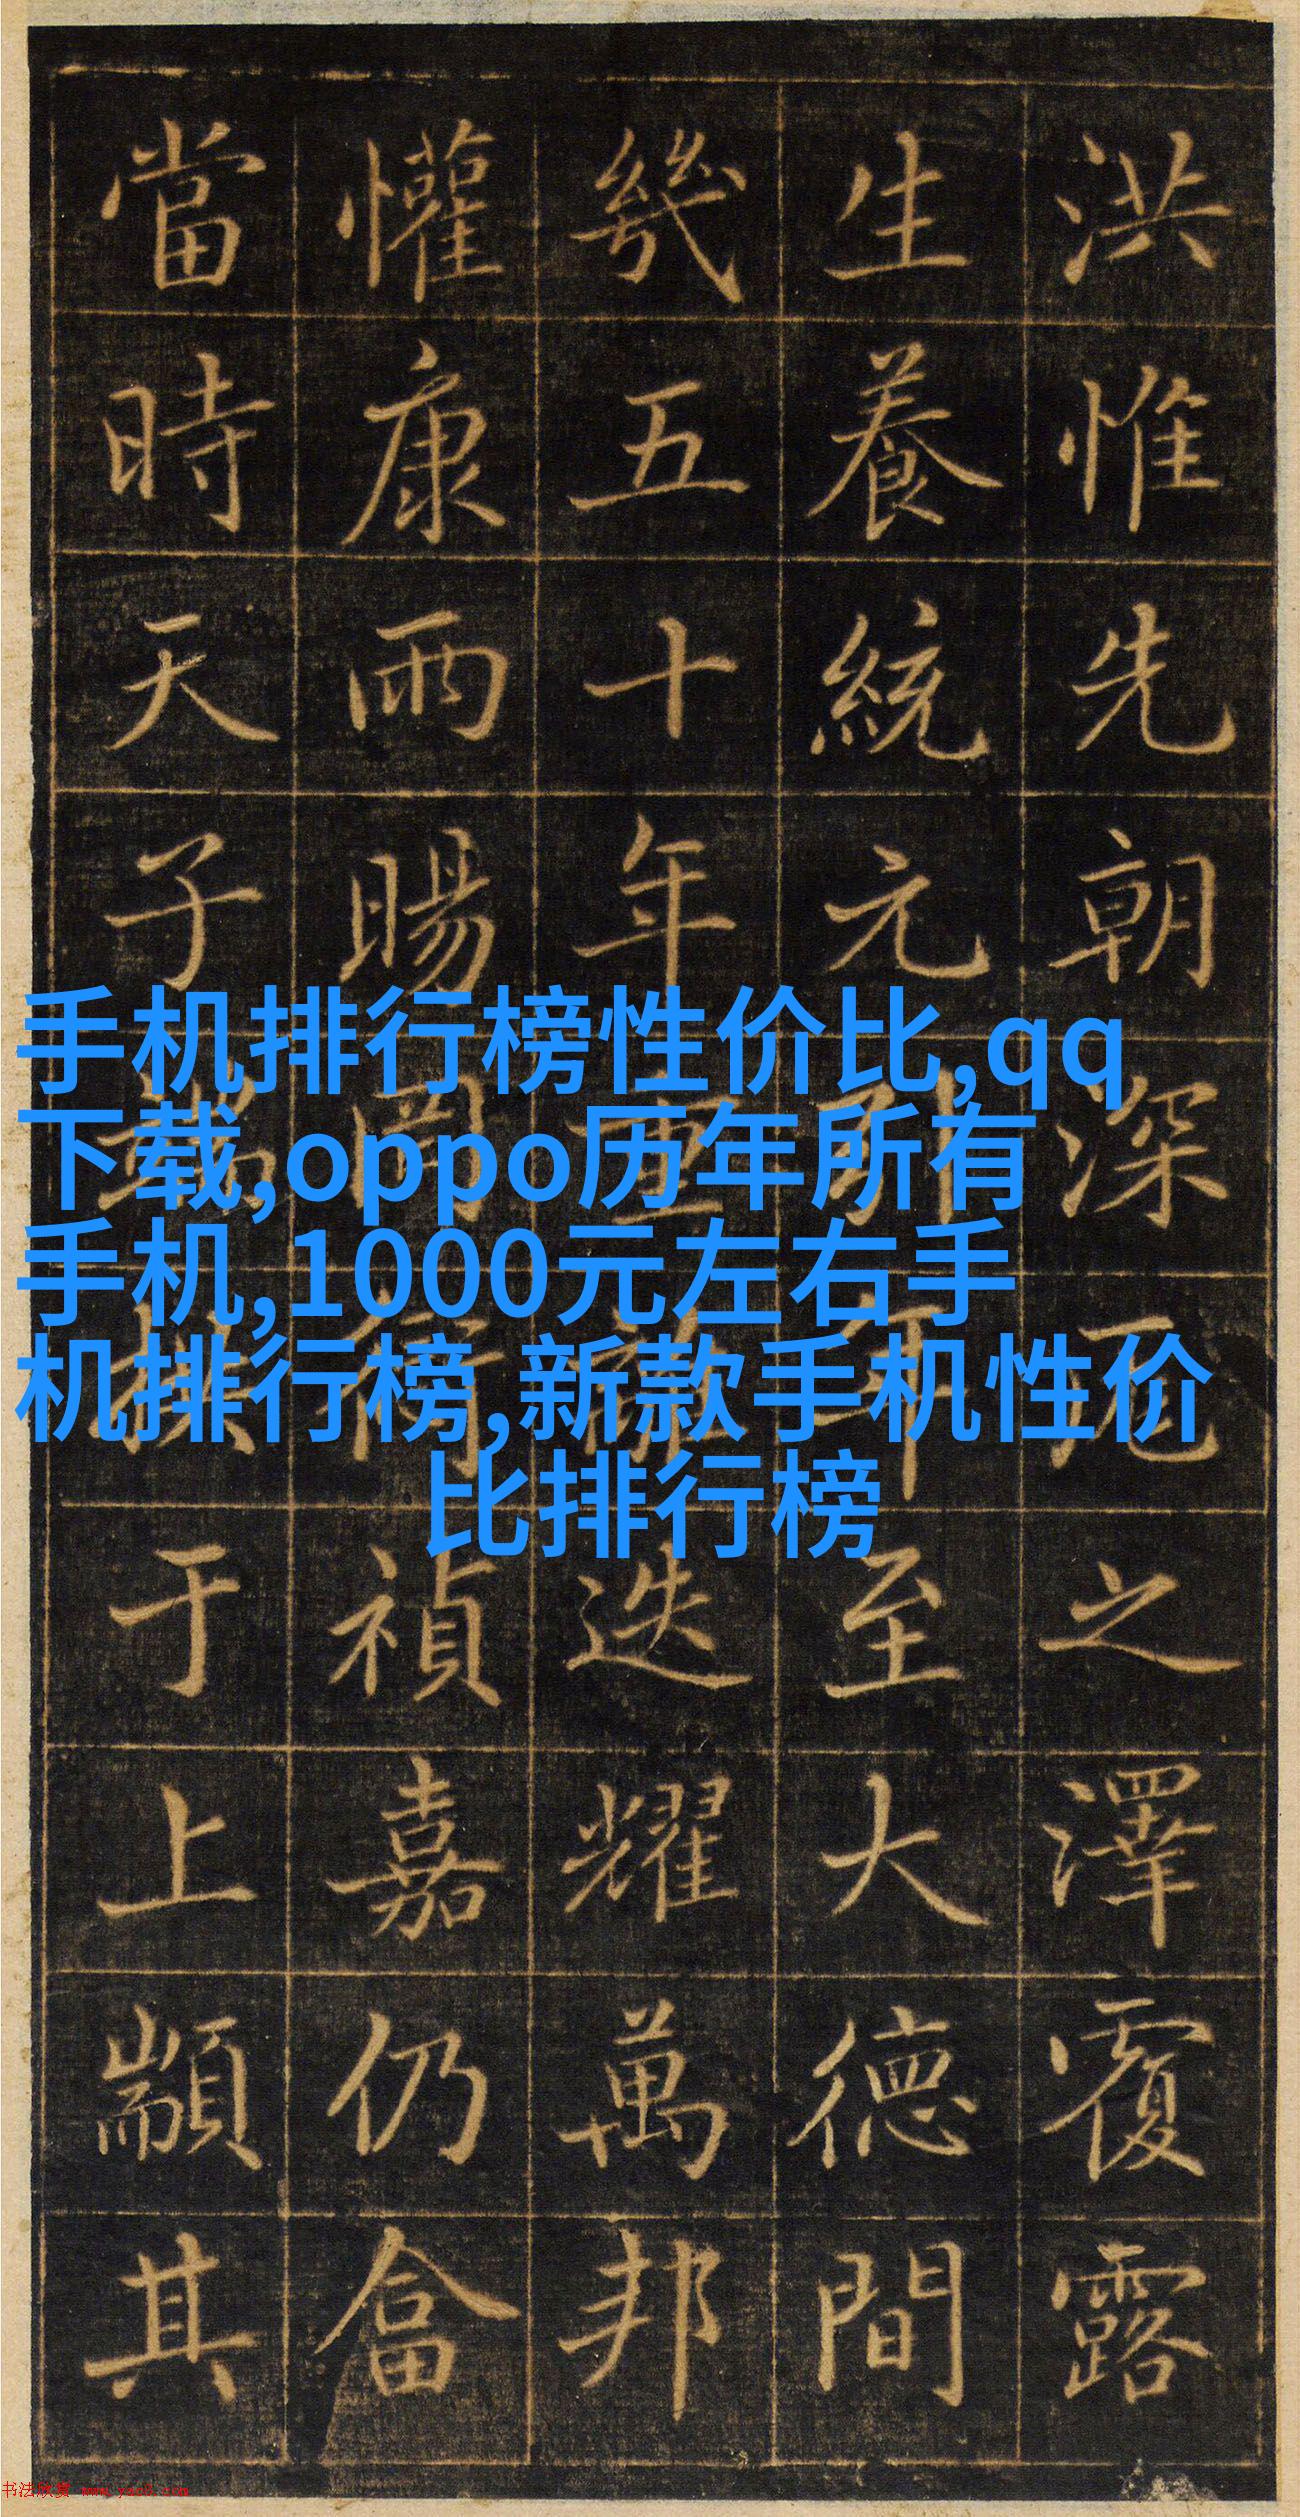 洪惟先朝深之澤覆露
生養統元年至大德間
幾五十年重迭耀萬邦
懽康雨暘禎嘉仍畣
當時天子端拱于上顓其
手机排行榜性价比,qq
下载,oppo历年所有
手机,1000元左右手
机排行榜,新款手机性价
比排行榜
书法欣赏 www.yac8.com